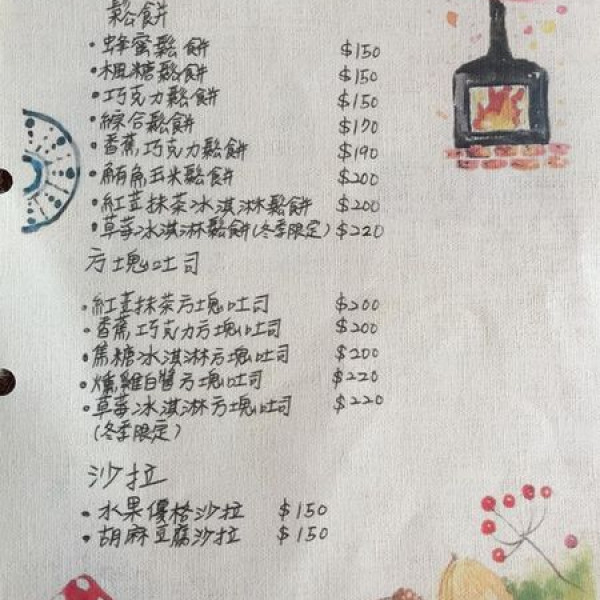 鬆餅
・蜂蜜鬆餅 $150
・楓糖鬆餅 $150
・巧克力鬆餅 $150
・綜合鬆餅 $170
・香蕉巧克力鬆餅 $190
・鮪魚玉米鬆餅 $200
・紅荳抹茶冰淇淋鬆餅 $200
・草莓冰淇淋鬆餅(冬季限定) $220
方塊吐司
・紅荳抹茶方塊吐司 $200
・香蕉巧克力方塊吐司 $200
・焦糖冰淇淋方塊吐司 $200
・燻雞白醬方塊吐司 $220
・草莓冰淇淋方塊吐司 $220
(冬季限定)
沙拉
・水果優格沙拉 $150
・胡麻豆腐沙拉 $150